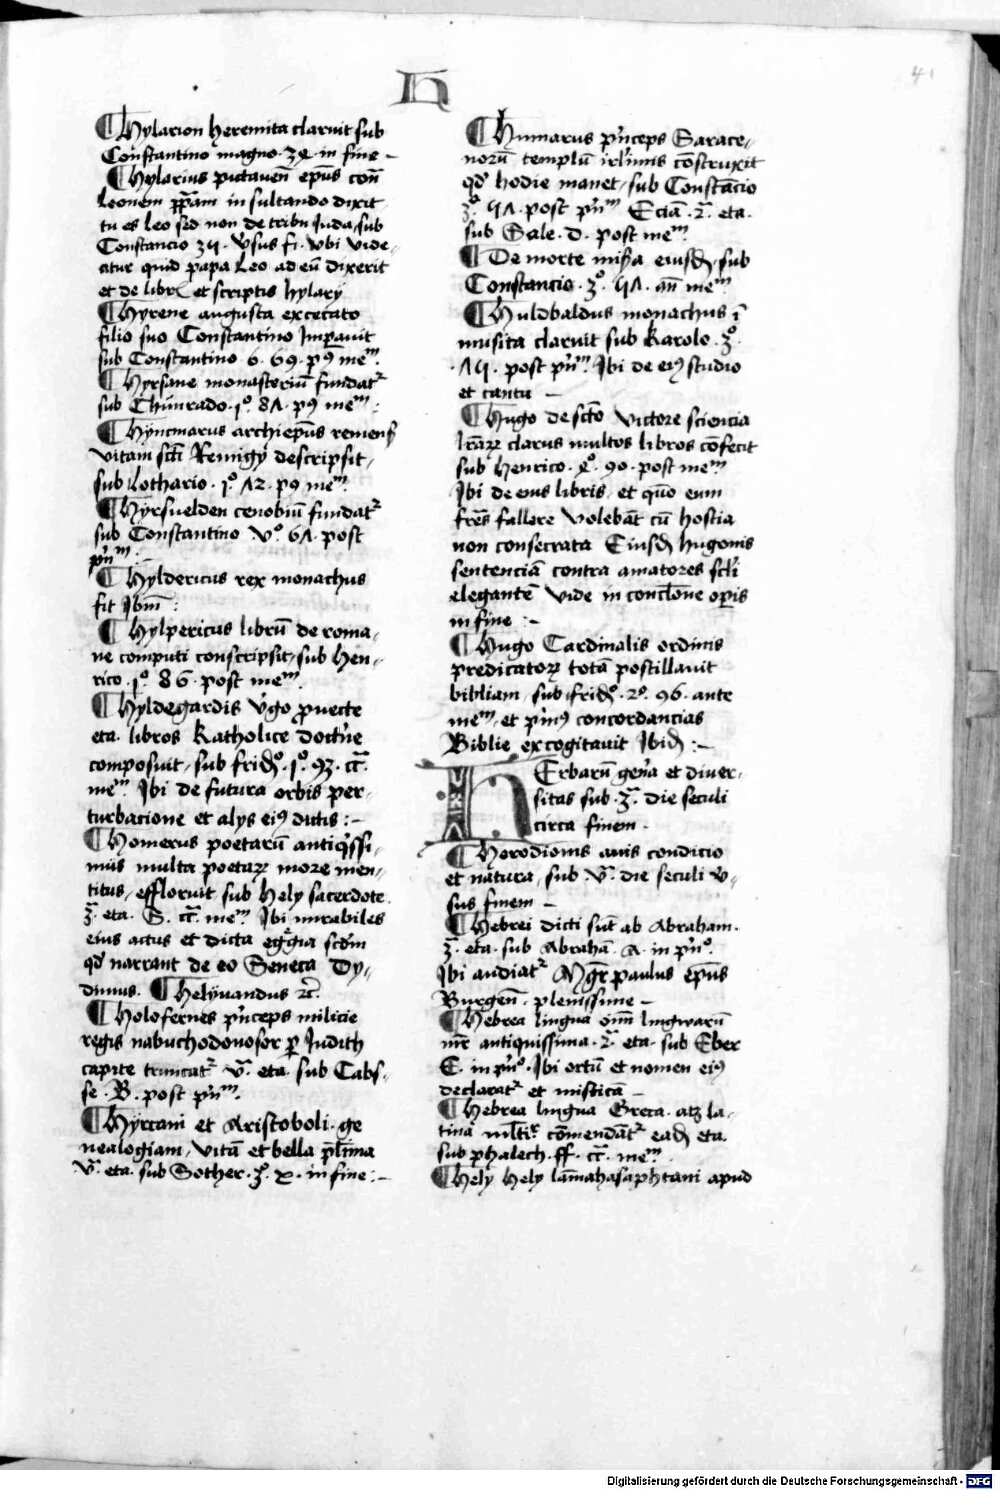 H
41
¶ Hylarion heremita claruit sub
Constantino magno · 34 · in fine –
¶ Hylarius pictaueñ ep̃us coñ
Leonem pp̃am in sultando dixit
tu es leo sed non de tribu Iuda, sub
Constancio 34 · v̉sus fi · vbi vide,
atur quid papa Leo ad eũ dixerit
et de libr̃ et scriptis hylarÿ
¶ Hyrene augusta excecato
filio suo Constantino Imp̱auit
sub Constantino · 6 · 69 · pꝰ meͫ ·
¶ Hyrsaue monasteriũ fundatᷣ
sub Chũnrado · 1º · 8Λ · pꝰ meͫ ·
¶ Hyncmarus archiep̃us remenẽ
vitam sc̃ti Remigÿ descripsit,
sub Lothario · 1º · Λ2 · pꝰ meͫ ·
¶ Hyrsuelden cenobiũ fundatᷣ
sub Constantino v̊ · 6Λ · post
p̉nͫ ·
¶ Hyldericus rex monachus
fit Ibm̃ :
¶ Hylpericus librũ de roma,
ne computi conscripsit, sub Hen,
rico · 1º · 86 · post meͫ ·
¶ Hyldegardis v̉go prouecte
eta · libros Katholice doct̉ne
composuit, sub frid̊ · 1º · 93 · cc̃ ·
meͫ Ibi de futura orbis per,
turbacione et alys eiꝰ dictis : –
¶ Homerus poetarũ antiq̉ssi,
mus multa poetarꝝ more men,
titus, effloruit sub Hely sacerdote
3ᵃ · eta · S · cc̃ · meͫ Ibi mirabiles
eius actus et dicta egͣgia scd̃m
qđ narrant de eo Seneca Dy,
dimus · ¶ Helyuandus ⁊c̃ ·
¶ Holofernes p̉nceps milicie
regis nabuchodonosor p̱ Iudith
capite truncatᷣ · vᵃ · eta · sub Cabs,
se · B · post p̉nͫ ·
¶ Hyrcani et Aristoboli · ge
nealogiam, vitã et bella pl̃ima
vᵃ · eta · sub Sother · 3º · x · in fine : –
¶ Humarus p̉nceps Sarace,
norũ templũ irl̃imis cõstruxit
qđ hodie manet, sub Constãcio
3º · 4Λ · post p̉nͫ Eciã · 2ᵃ · eta ·
sub Sale · D · post meͫ ·
¶ De morte mis̉a eiusđ, sub
Constancio · 3º · 4Λ · añ meͫ ·
¶ Huldbaldus monachus ĩ
musica claruit sub Karolo · 3º ·
· Λ4 · post p̉nͫ · Ibi de eiꝰ studio
et cantu –
¶ Hugo de sc̃to Victore sciencia
lr̃arꝝ clarus multos libros cõfecit
sub Henrico · 4º · 90 · post meͫ
Ibi de eius libris · et quo eum
frẽs fallere volebãt cũ hostia
non consecrata Eiusđ hugonis
sentenciã contra amatores scl̃i
elegantẽ vide in conclõne op̱is
in fine : –
¶ Hugo Cardinalis ordinis
predicatorꝝ totã postillauit
bibliam, sub frid̊ · 2º · 96 · ante
meͫ, et p̉mꝰ concordancias
Biblie excogitauit Ibiđ : –
Herbarũ gen̉a et diuer,
sitas sub · 3ᵃ · die seculi
circa finem ·
¶ Herodionis auis condicio
et natura, sub vᵃ · die seculi v̉,
sus finem –
¶ Hebrei dicti sũt ab Abraham ·
3ᵃ · eta · sub Abrahã · A · in p̉nº ·
Ibi audiatᷣ Mgr̃ paulus ep̃us
Burgeñ · plenissime –
¶ Hebrea lingua oĩm lingwarũ
mr̃ antiquissima · 2ᵃ · eta · sub Eber
E · in p̉nº · Ibi ortũ et nomen eiꝰ
declaratᷣ et misticã –
¶ Hebrea lingua Greca · atꝫ la,
tina ml̃tiꝰ cõmendãtᷣ eađ eta ·
sub phalech · ff · cc̃ · meͫ ·
¶ Hely Hely lãmahasaphtani apud
Digitalisierung gefördert durch die Deutsche Forschungsgemeinschaft - DFG